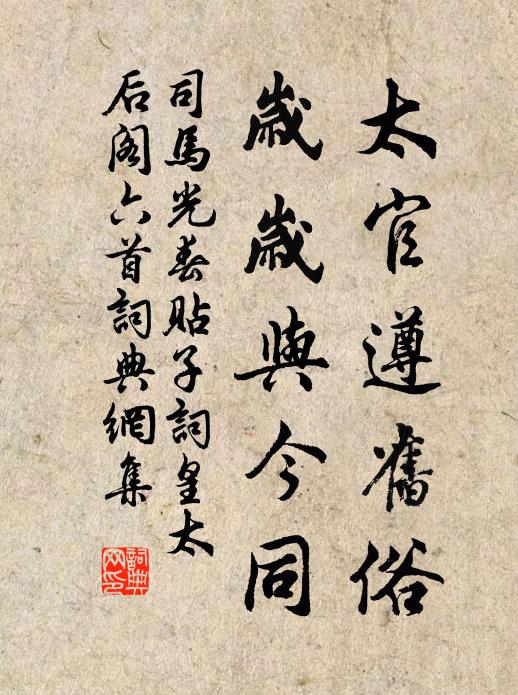 太官遵舊俗
歲歲與今同
司馬光春貼子詞皇太
后閣六首詞典網集
詞典網印